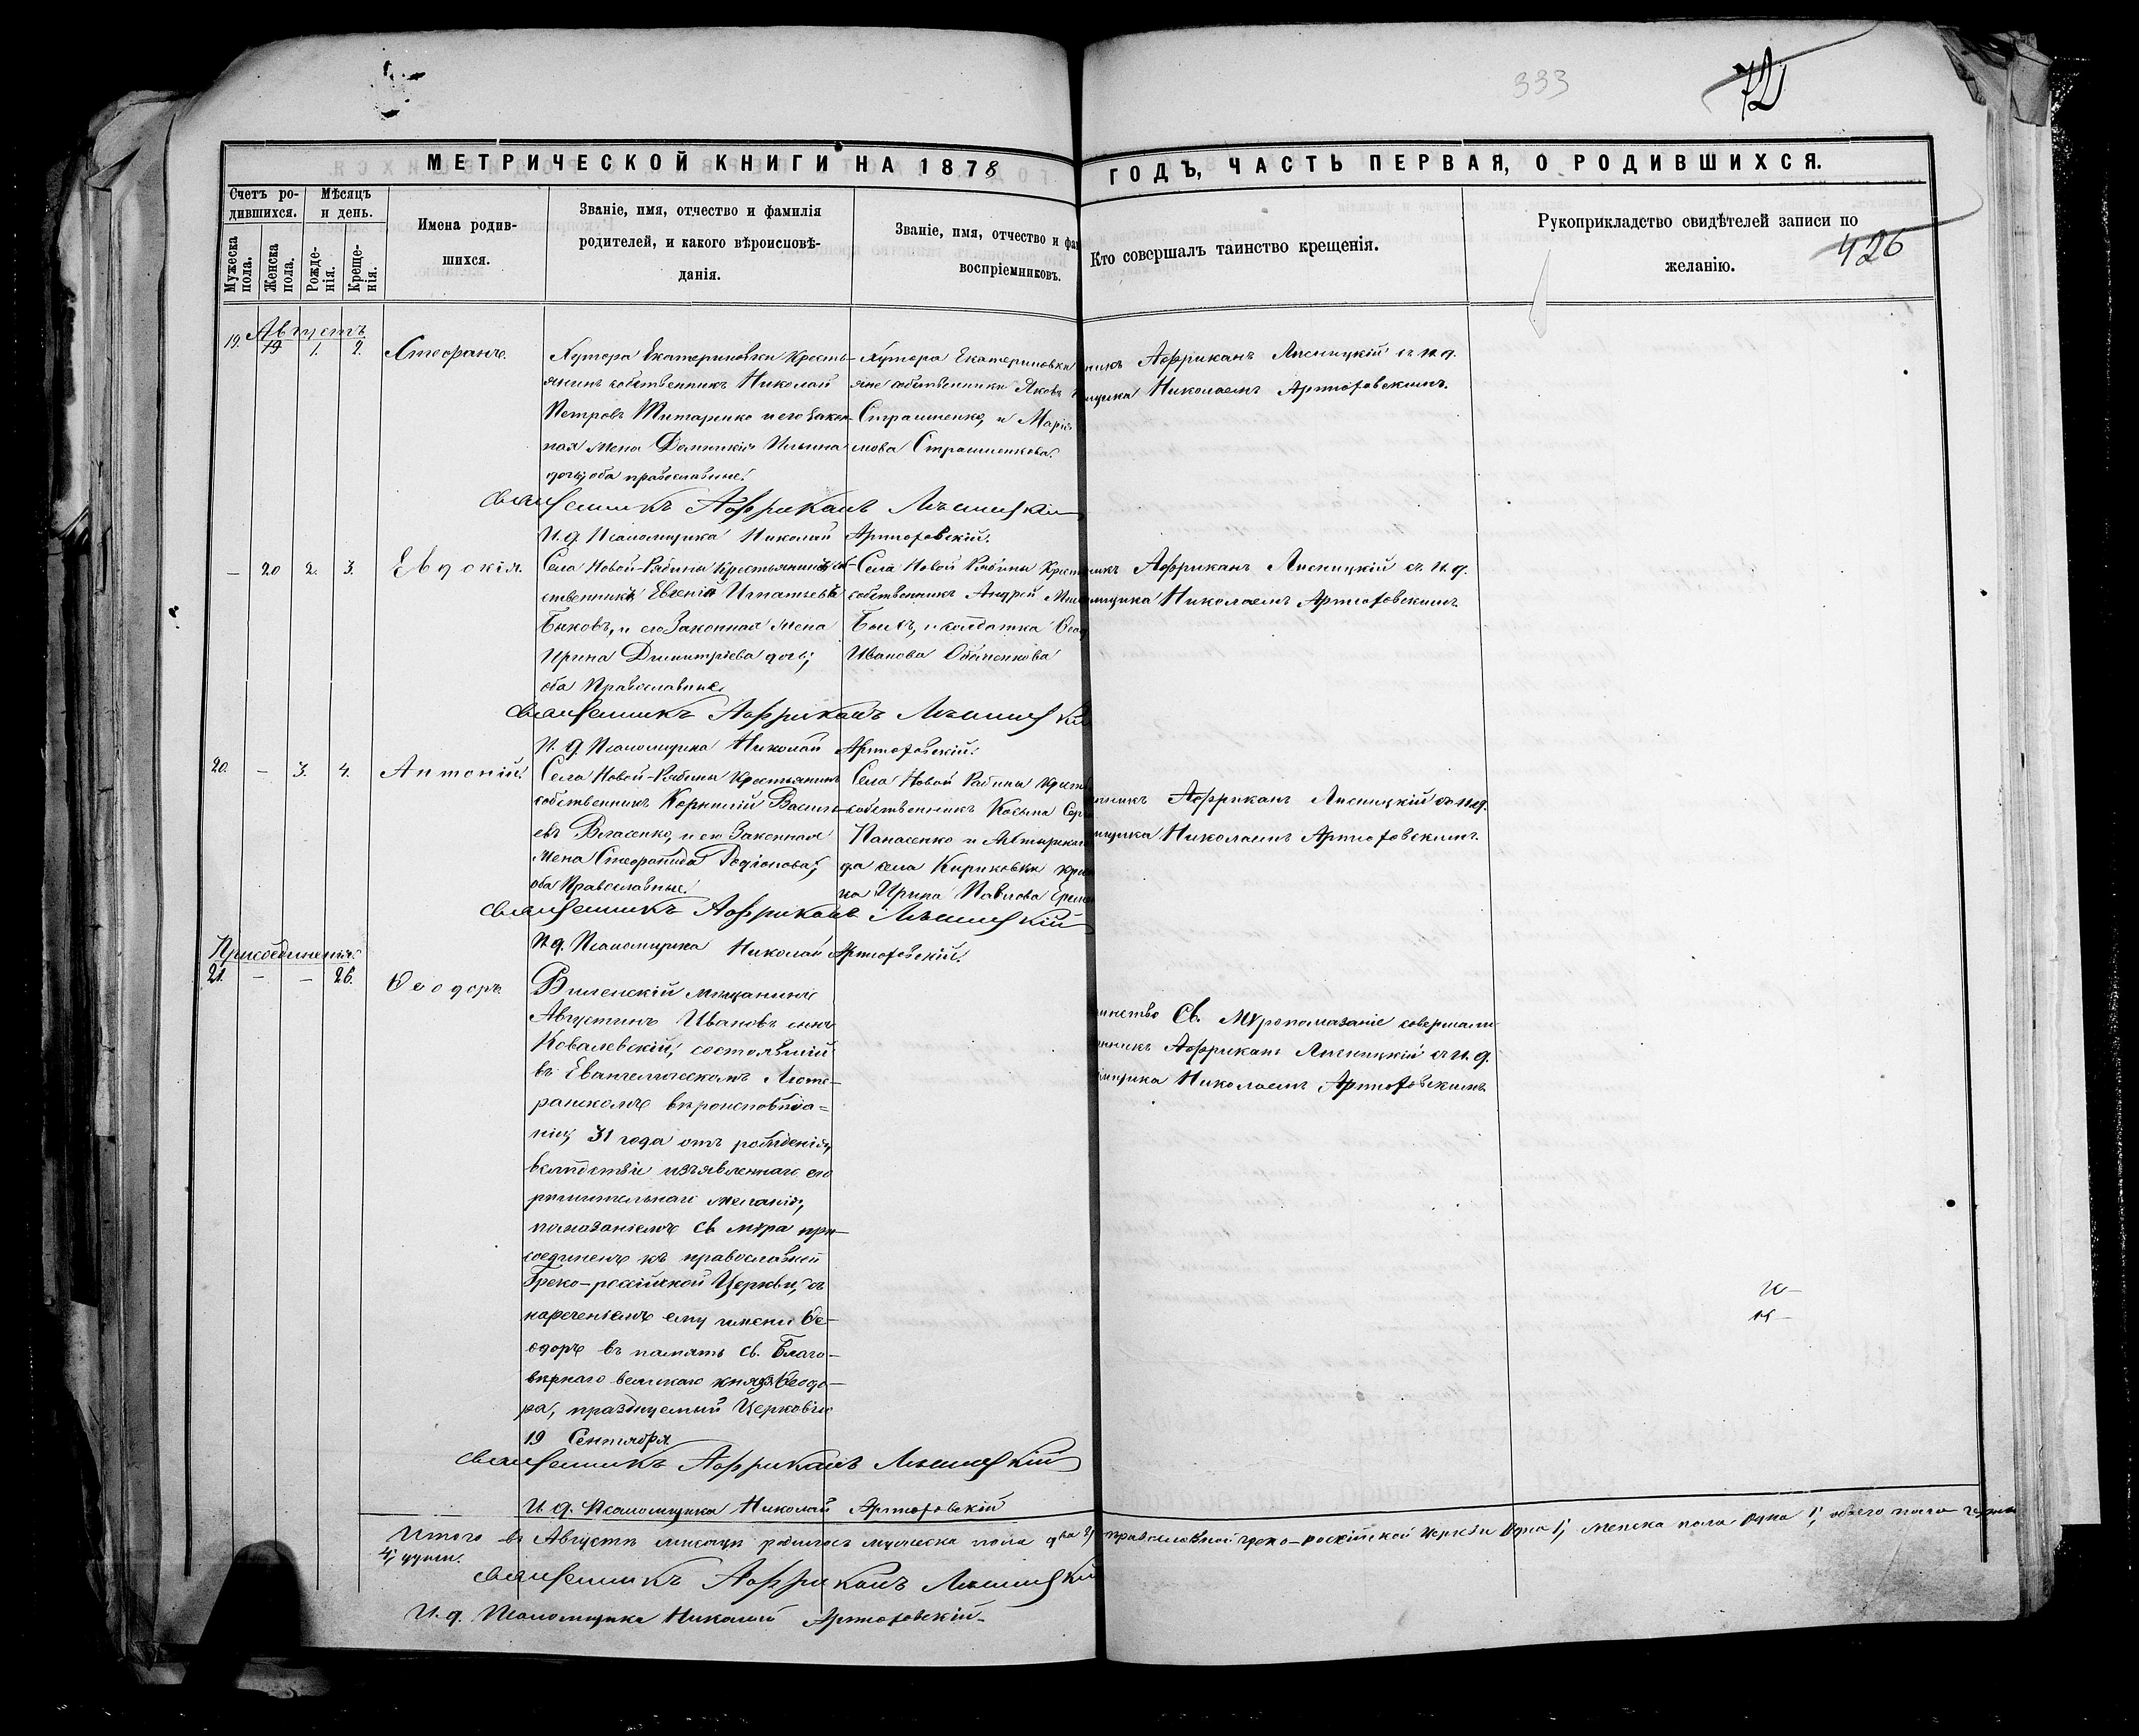 333
72
МЕТРИЧЕСКОЙ КНИГИ НА 1878
ГОДЪ, ЧАСТЬ ПЕРВАЯ, О РОДИВШИХСЯ.
Счетъ ро-
дившихся.
Мѣсяцъ
и день.
Мужеска
пола.
Женска
пола.
Рожде-
нія.
Креще-
нія.
Имена родив-
шихся.
Званіе, имя, отчество и фамилія
родителей, и какого вѣроисповѣ-
данія.
Званіе, имя, отчество и фа
воспріемниковъ.
Кто совершалъ таинство крещенія.
Рукоприкладство свидѣтелей записи по
желанію.
426
Августъ
19. 19 1. 2.
Стефанъ.
Хутора Екатериновки кресть-
янинъ собственникъ Николай
Петровъ Титаренко и его закон-
ная жена Домникія Ильина
дочь, оба православные.
Хутора Екатериновки
яне собственники Яковъ
Страшненко, и Марія
мова Страшненкова.
никъ Аѳриканъ Лисницкій съ и. д.
мщика Николаемъ Артюховскимъ.
Священникъ Аѳриканъ Лѣсницкій
И. д. Псаломщика Николай Артюховскій.
— 20 2. 3.
Евдокія.
Села Новой-Рябины крестьянинъ соб-
ственникъ Евгеній Игнатьевъ
Быковъ, и его законная жена
Ирина Димитріева дочь,
оба православные.
Села Новой Рябины крест
собственникъ Андрей
Быкъ, и солдатка Ѳеод
Иванова
никъ Аѳриканъ Лисницкій съ и. д.
мщика Николаемъ Артюховскимъ.
Священникъ Аѳриканъ Лѣсницкій
И. д. Псаломщика Николай Артюховскій.
20. — 3. 4.
Антоній.
Села Новой-Рябины крестьянинъ
собственникъ Корнилій Василь-
евъ Власенко, и его законная
жена Стефанида Родіонова,
оба православные.
Села Новой Рябины крест
собственникъ Косьма Сер
Панасенко и Ахтырскаго
да села Кириковки крес
ка Ирина Павлова
нникъ Аѳриканъ Лисницкій съ и. д.
мщика Николаемъ Артюховскимъ.
Священникъ Аѳриканъ Лѣсницкій
И. д. Псаломщика Николай Артюховскій.
Присоединенія.
21. — — 26.
Ѳеодоръ.
Виленскій мѣщанинъ
Августинъ Ивановъ сынъ
Ковалевскій, состоявшій
въ Евангелическомъ Люте-
ранскомъ вѣроисповѣда-
ніи, 31 года отъ рожденія,
вслѣдствіе изъявленнаго его
рѣшительнаго желанія,
помазаніемъ св. мѵра при-
соединенъ къ православной
Греко-россійской Церкви, съ
нареченіемъ ему имени Ѳе-
одоръ въ память св. Благо-
вѣрнаго великаго князя Ѳеодо-
ра, празднуемый Церковію
19 Сентября.
инство Св. Мѵропомазаніе совершали
нникъ Аѳриканъ Лисницкій съ и. д.
мщика Николаемъ Артюховскимъ.
Священникъ Аѳриканъ Лѣсницкій
И. д. Псаломщика Николай Артюховскій
Итого въ Августѣ мѣсяцѣ родилось мужеска пола два 2, православной греко-россійской церкви одна 1, женска пола одна 1, обоего пола четыре
4, души.
Священникъ Аѳриканъ Лѣсницкій
И. д. Псаломщика Николай Артюховскій.